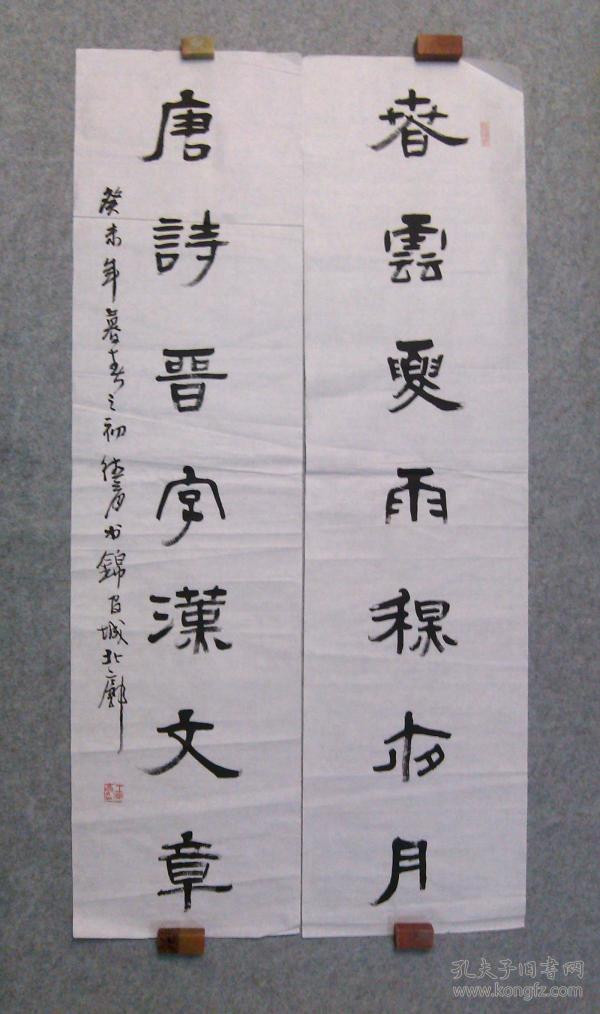 春雲夏雨秋夜月
唐詩晋字漢文章
癸未年暮春之初书錦官城北廓
孔夫子旧书网
www.kongfz.com